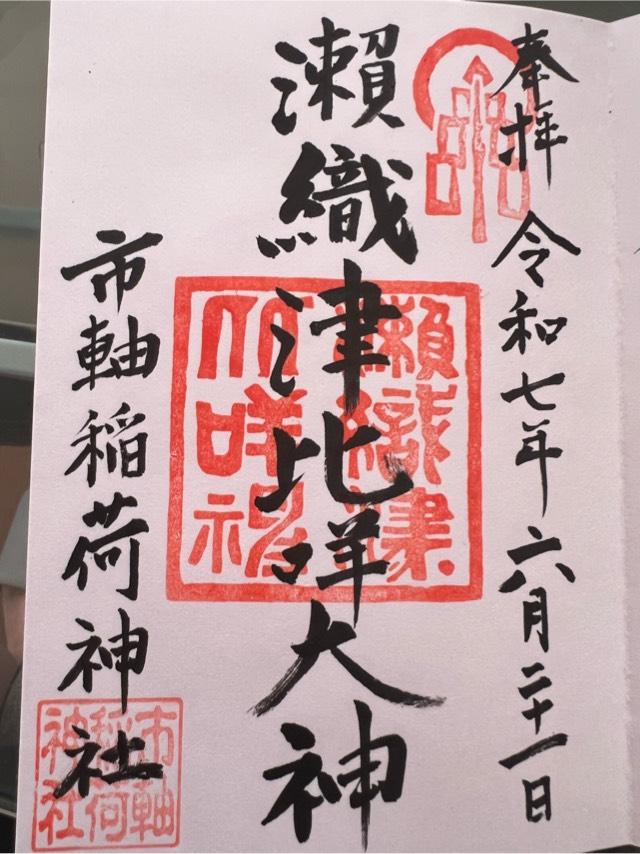 奉拝 令和七年六月二十一日
瀬織津比咩大神
市軸稲荷神社
市軸
稲荷
神社